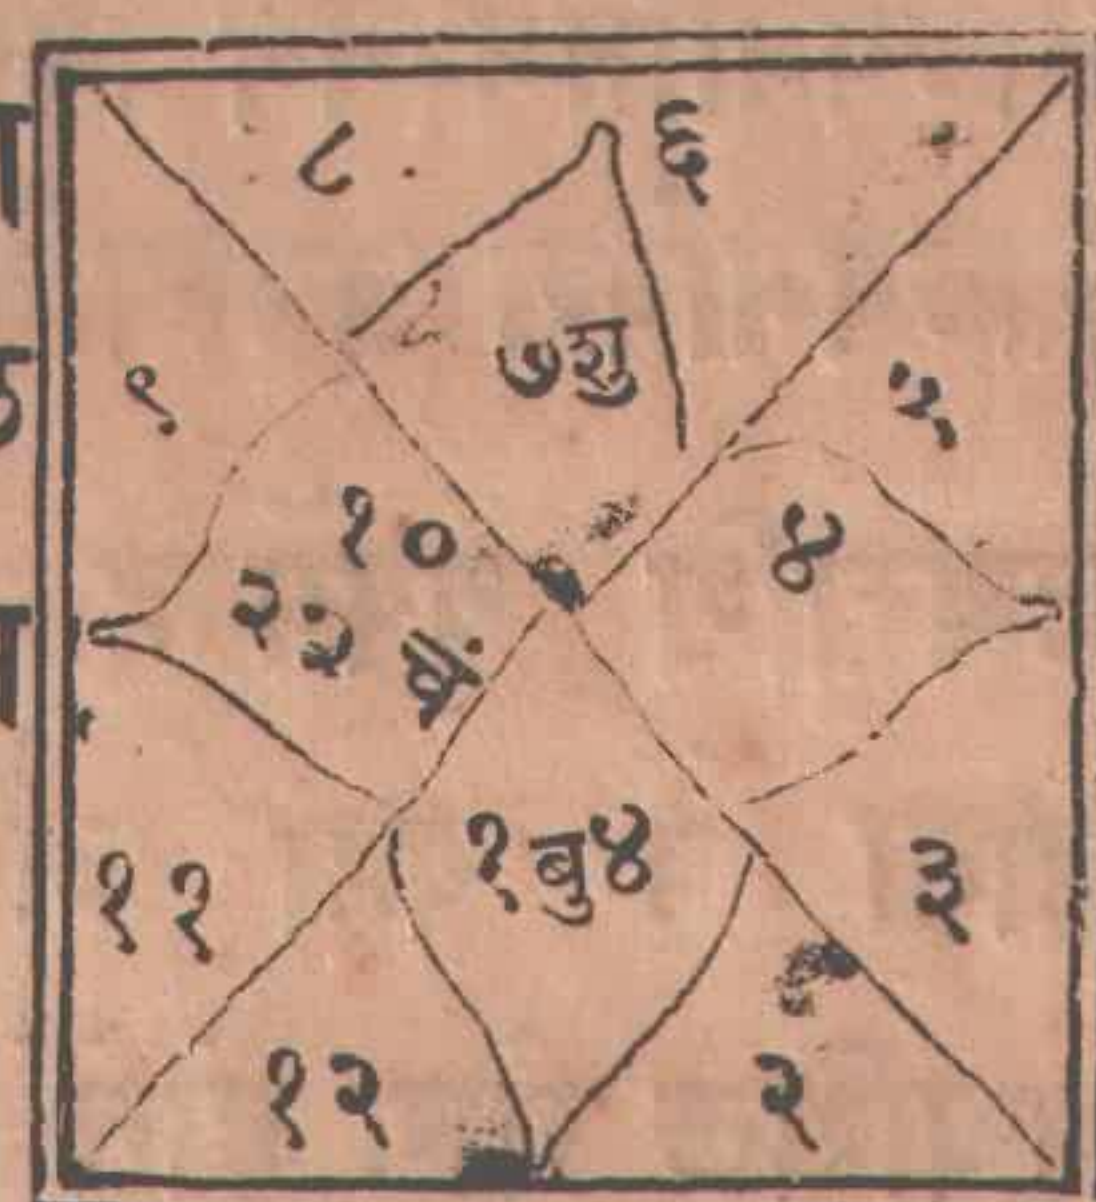 ८ ६
९ ७शु ५
१० ४
२२ बं
११ १बु४ ३
१२ २